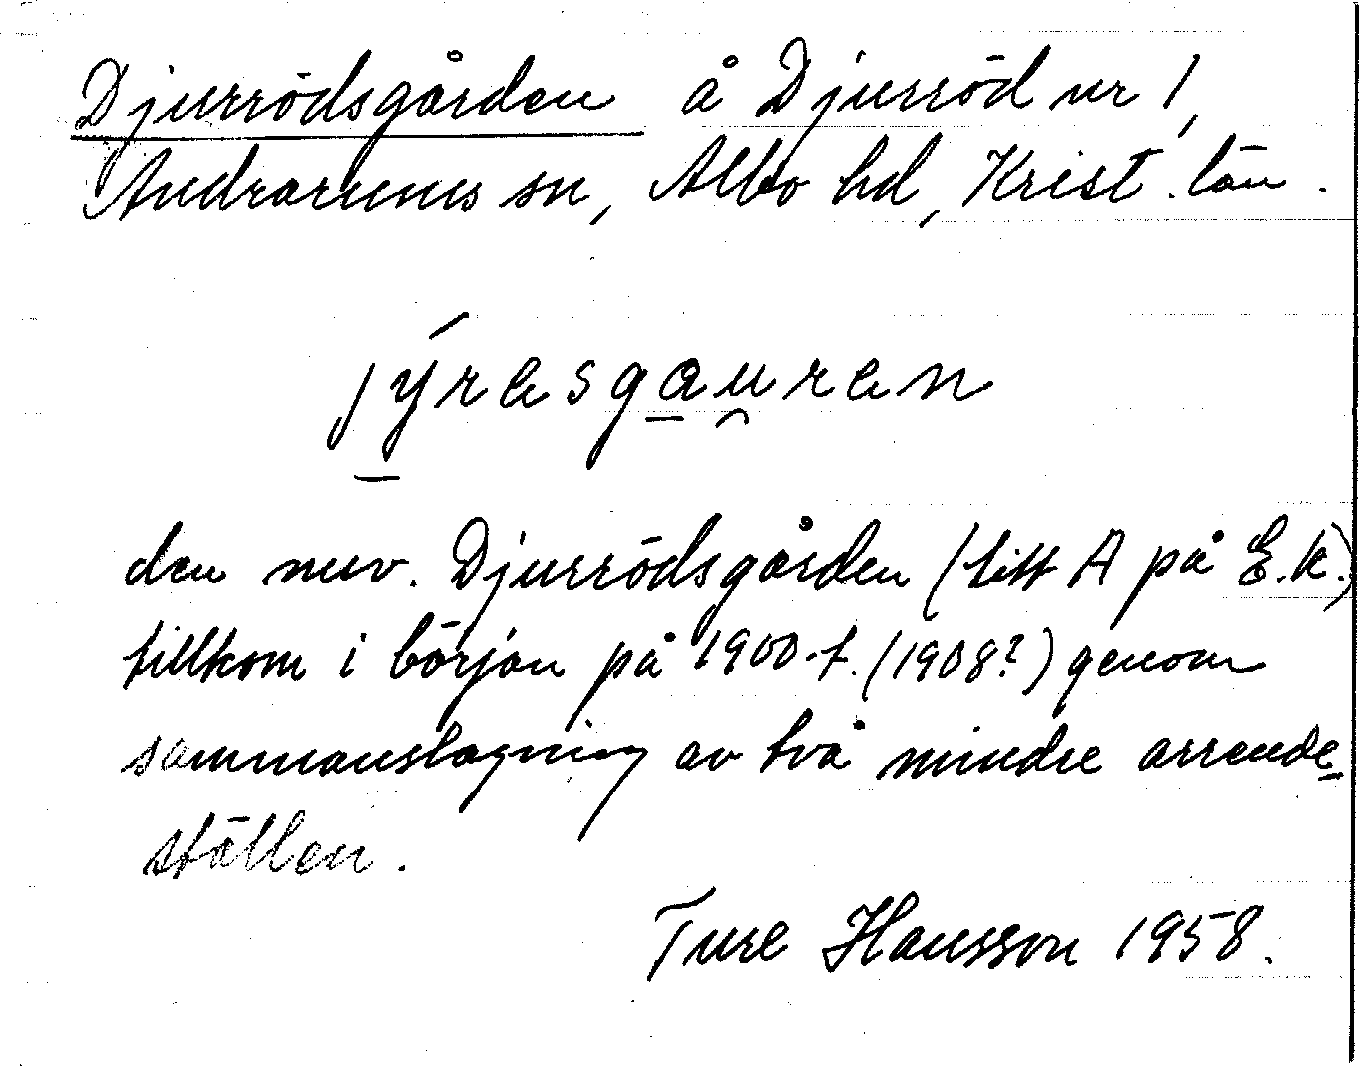 Djurrödsgården å Djurröd nr 1,
Andrarums sn, Albo hd, Krist. län.
jýrasgau̯ran
den nuv. Djurrödsgården (litt A på E.k.)
tillkom i början på 1900-t. (1908?) genom
sammanslagning av två mindre arrende-
ställen.
Ture Hansson 1958.